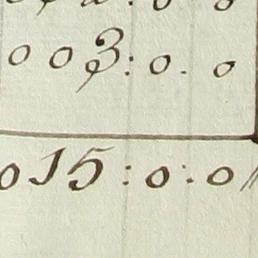 003:0.0
015:0:0//